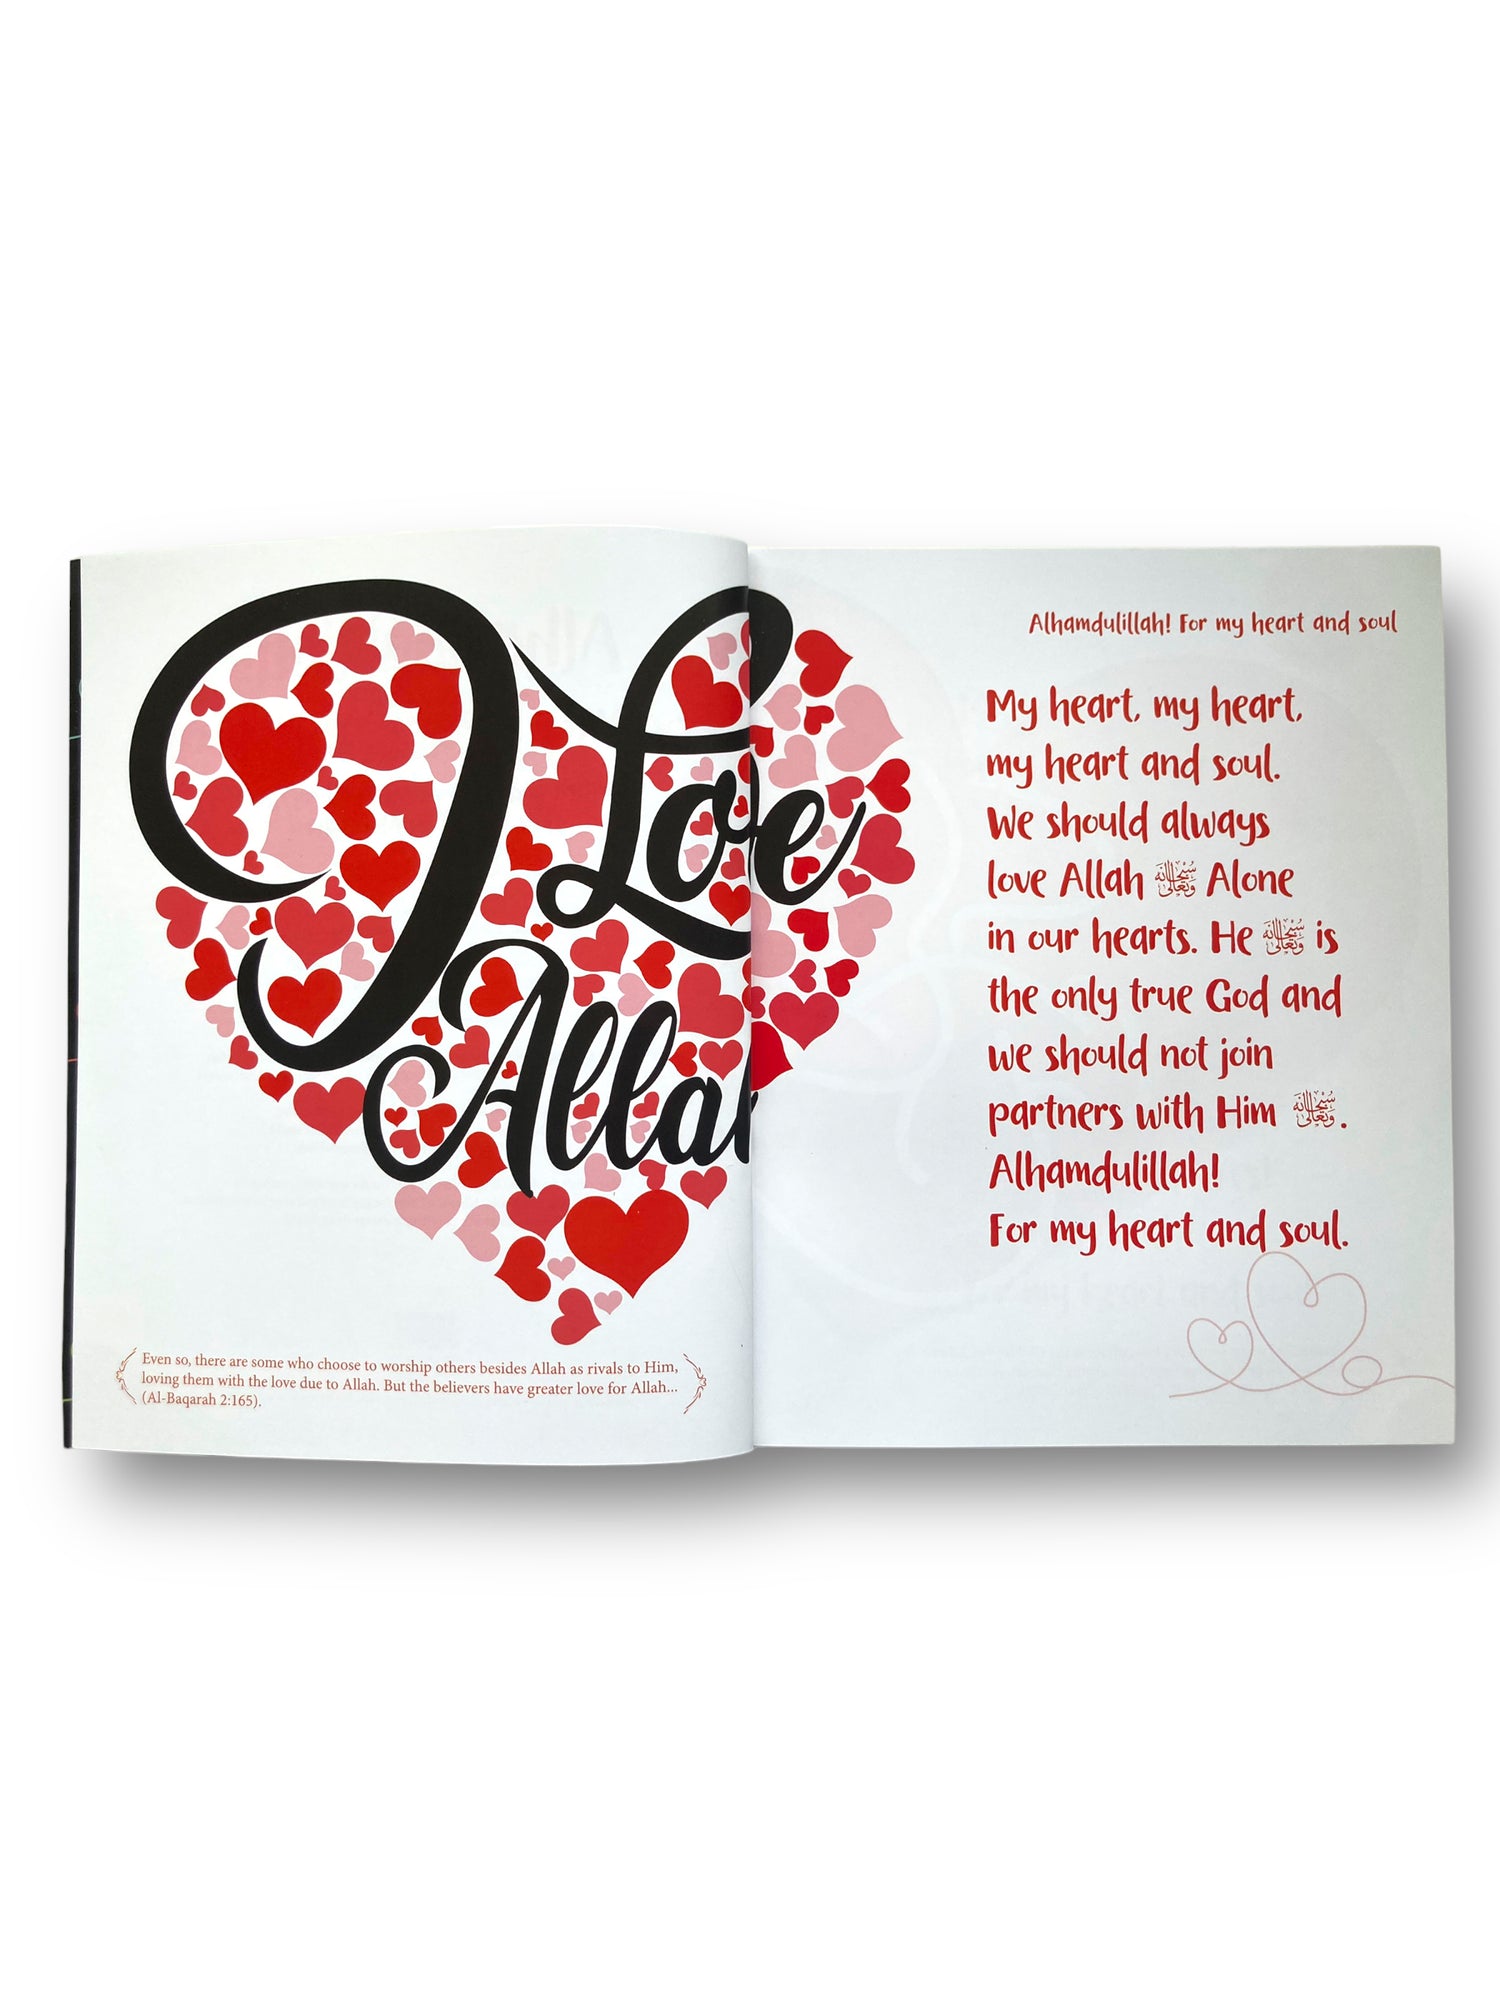 I Love
Allah
Even so, there are some who choose to worship others besides Allah as rivals to Him,
loving them with the love due to Allah. But the believers have greater love for Allah...
(Al-Baqarah 2:165).
Alhamdulillah! For my heart and soul
My heart, my heart,
my heart and soul.
We should always
love Allah سُبْحَانَهُ وَتَعَالَىٰ Alone
in our hearts. He سُبْحَانَهُ وَتَعَالَىٰ is
the only true God and
we should not join
partners with Him سُبْحَانَهُ وَتَعَالَىٰ.
Alhamdulillah!
For my heart and soul.